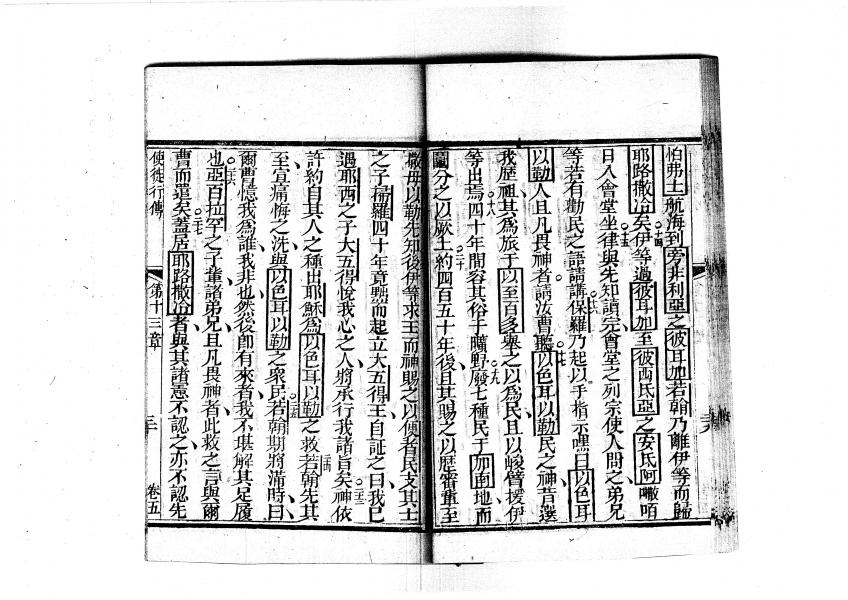 怕弗土航海到旁非利亞之彼耳加若翰乃離伊等而歸
耶路撒冷矣伊等過彼耳加至彼西氏亞之安氏阿嗷咟
日入會堂坐律與先知讀完會堂之列宗使人問之弟兄
等若有勸民之語請講保羅乃起以手指示嘿曰以色耳
以勒人且凡畏神者請汝曹聽以色耳以勒民之神昔選
我歷祖其爲旅于以至百多舉之以爲民且以峻臂援伊
等出焉四十年間容其俗于曠野廢七種民于加南地而
鬮分之以厥土約四百五十年後且其賜之以歷審董至
撒母以勒先知後伊等求王而神賜之以便者民支其土
之子掃羅四十年竟黜而起立大五得王自証之曰我已
遇耶西之子大五得悅我心之人將承行我諸旨矣神依
許約自其人之種出耶穌爲以色耳以勒之救若翰先其
至宣痛悔之洗與以色耳以勒之衆民若翰期將滿時曰
爾曹憶我爲誰我非也然後即有來者我不堪解其足履
也亞百拉罕之子輩諸弟兄且凡畏神者此救之言與爾
曹而遣矣蓋居耶路撒冷者與其諸憲不認之亦不認先
使徒行傳 第十三章 三 卷五